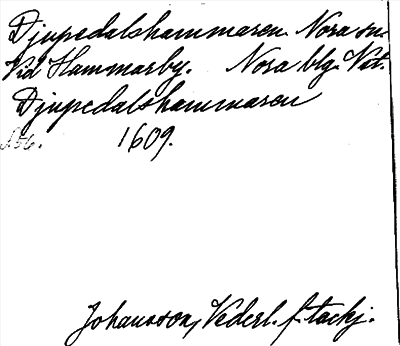 Djupedalshammaren. Nora sn.
Vid Hammarby. Nora blg. Vst.
Djupedalshammaren
1609.
Johansson, Vederl. f. tackj.